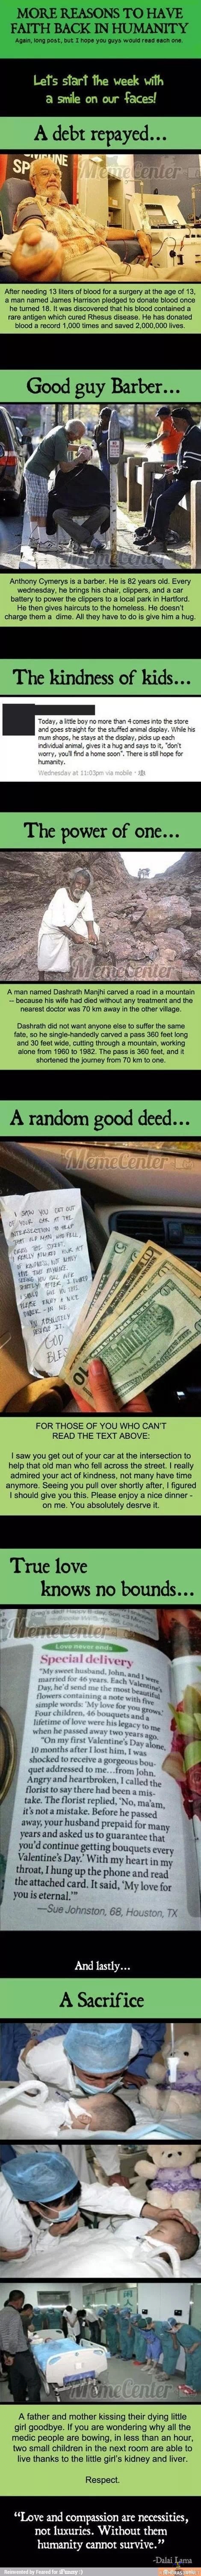 MORE REASONS TO HAVE
FAITH BACK IN HUMANITY
Again, long post, but I hope you guys would read each one.
Let's start the week with
a smile on our faces!
A debt repayed...
MemeCenter
After needing 13 liters of blood for a surgery at the age of 13,
a man named James Harrison pledged to donate blood once
he turned 18. It was discovered that his blood contained a
rare antigen which cured Rhesus disease. He has donated
blood a record 1,000 times and saved 2,000,000 lives.
Good guy Barber...
MemeCenter
Anthony Cymerys is a barber. He is 82 years old. Every
wednesday, he brings his chair, clippers, and a car
battery to power the clippers to a local park in Hartford.
He then gives haircuts to the homeless. He doesn't
charge them a dime. All they have to do is give him a hug.
The kindness of kids...
Today, a little boy no more than 4 comes into the store
and goes straight for the stuffed animal display. While his
mum shops, he stays at the display, picks up each
individual animal, gives it a hug and says to it, "don't
worry, you'll find a home soon". There is still hope for
humanity.
Wednesday at 11:03pm via mobile
The power of one...
MemeCenter
A man named Dashrath Manjhi carved a road in a mountain
-- because his wife had died without any treatment and the
nearest doctor was 70 km away in the other village.
Dashrath did not want anyone else to suffer the same
fate, so he single-handedly carved a pass 360 feet long
and 30 feet wide, cutting through a mountain, working
alone from 1960 to 1982. The pass is 360 feet, and it
shortened the journey from 70 km to one.
A random good deed...
MemeCenter
I SAW YOU GET OUT
OF YOUR CAR AT THE
INTERSECTION TO HELP
THAT OLD MAN WHO FELL
GOD
BLES
10
FOR THOSE OF YOU WHO CAN'T
READ THE TEXT ABOVE:
I saw you get out of your car at the intersection to
help that old man who fell across the street. I really
admired your act of kindness, not many have time
anymore. Seeing you pull over shortly after, I figured
I should give you this. Please enjoy a nice dinner -
on me. You absolutely desrve it.
True love
knows no bounds...
MemeCenter
Love never ends
Special delivery
"My sweet husband, John, and I were
married for 46 years. Each Valentine's
Day, he'd send me the most beautiful
flowers containing a note with five
simple words: 'My love for you grows.'
Four children, 46 bouquets and a
lifetime of love were his legacy to me
when he passed away two years ago.
"On my first Valentine's Day alone,
10 months after I lost him, I was
shocked to receive a gorgeous bou-
quet addressed to me...from John.
Angry and heartbroken, I called the
florist to say there had been a mis-
take. The florist replied, 'No, ma'am,
it's not a mistake. Before he passed
away, your husband prepaid for many
years and asked us to guarantee that
you'd continue getting bouquets every
Valentine's Day.' With my heart in my
throat, I hung up the phone and read
the attached card. It said, 'My love for
you is eternal.'"
—Sue Johnston, 68, Houston, TX
And lastly...
A Sacrifice
MemeCenter
A father and mother kissing their dying little
girl goodbye. If you are wondering why all the
medic people are bowing, in less than an hour,
two small children in the next room are able to
live thanks to the little girl's kidney and liver.
Respect.
"Love and compassion are necessities,
not luxuries. Without them
humanity cannot survive."
-Dalai Lama